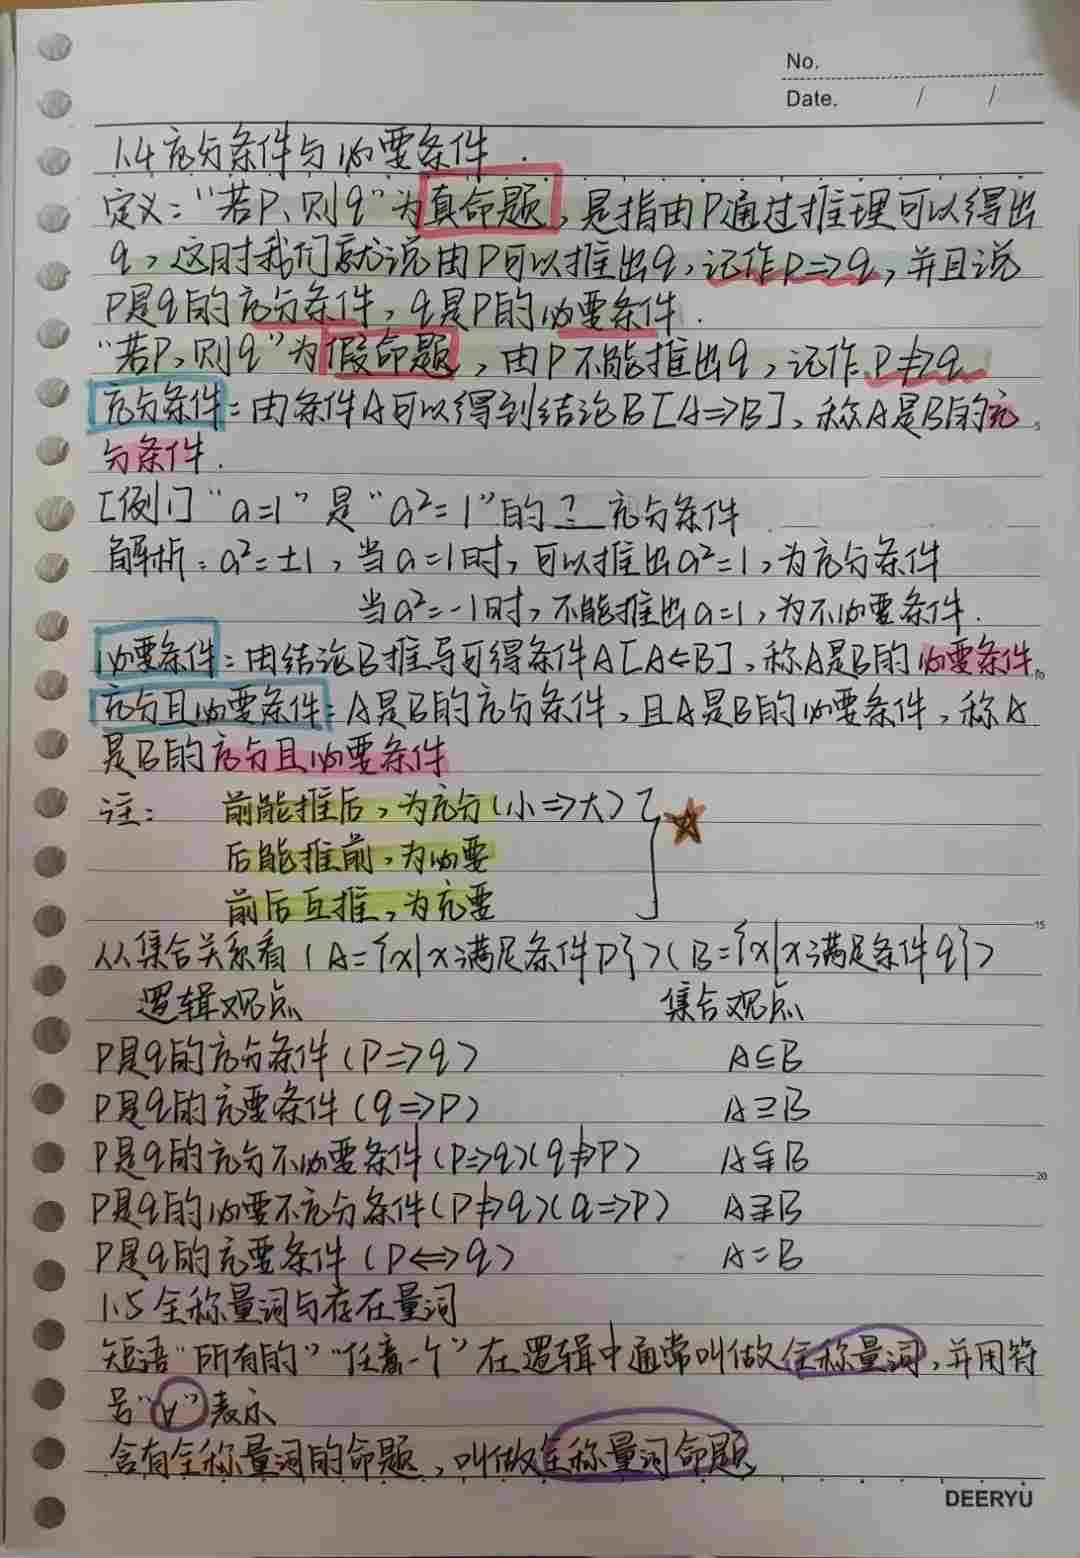 No.
Date. / /
1.4 充分条件与必要条件.
定义:“若P、则q”为真命题,是指由P通过推理可以得出
q,这时我们就说由P可以推出q,记作P⇒q,并且说
P是q的充分条件,q是P的必要条件.
“若P,则q”为假命题,由P不能推出q,记作P⇏q
充分条件:由条件A可以得到结论B[A⇒B]、称A是B的充
分条件.
[例1]“a=1”是“a²=1”的 ? 充分条件
解析:a²=±1,当a=1时,可以推出a²=1,为充分条件
当a²=-1时,不能推出a=1,为不必要条件.
必要条件:由结论B推导可得条件A[A⇐B],称A是B的必要条件
充分且必要条件:A是B的充分条件,且A是B的必要条件,称A
是B的充分且必要条件
注: 前能推后,为充分(小⇒大)
后能推前,为必要
前后互推,为充要
从集合关系看(A={x|x满足条件P})(B={x|x满足条件q})
逻辑观点 集合观点
P是q的充分条件(P⇒q) A⊆B
P是q的充要条件(q⇒P) A⊇B
P是q的充分不必要条件(P⇒q)(q⇏P) A⫋B
P是q的必要不充分条件(P⇏q)(q⇒P) A⫌B
P是q的充要条件(P⇔q) A=B
1.5 全称量词与存在量词
短语“所有的”“任意一个”在逻辑中通常叫做全称量词,并用符
号“∀”表示
含有全称量词的命题,叫做全称量词命题
5
10
15
20
DEERYU